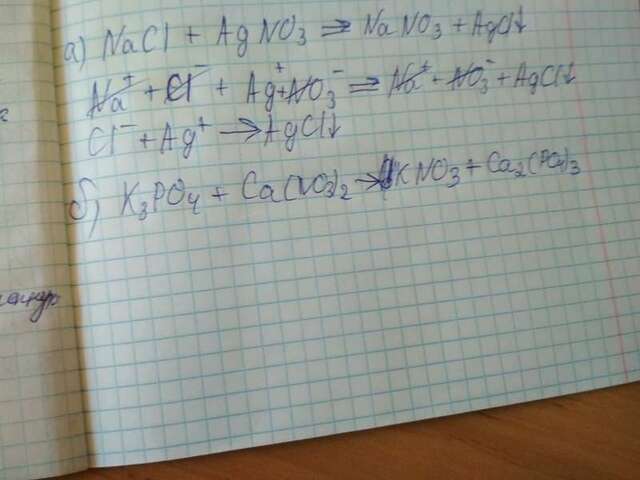 а) NaCl + AgNO3 ⇒ NaNO3 + AgCl↓
Na⁺ + Cl⁻ + Ag⁺ + NO3⁻ ⇒ Na⁺ + NO3⁻ + AgCl↓
Cl⁻ + Ag⁺ → AgCl↓
б) K3PO4 + Ca(NO3)2 → KNO3 + Ca2(PO4)3